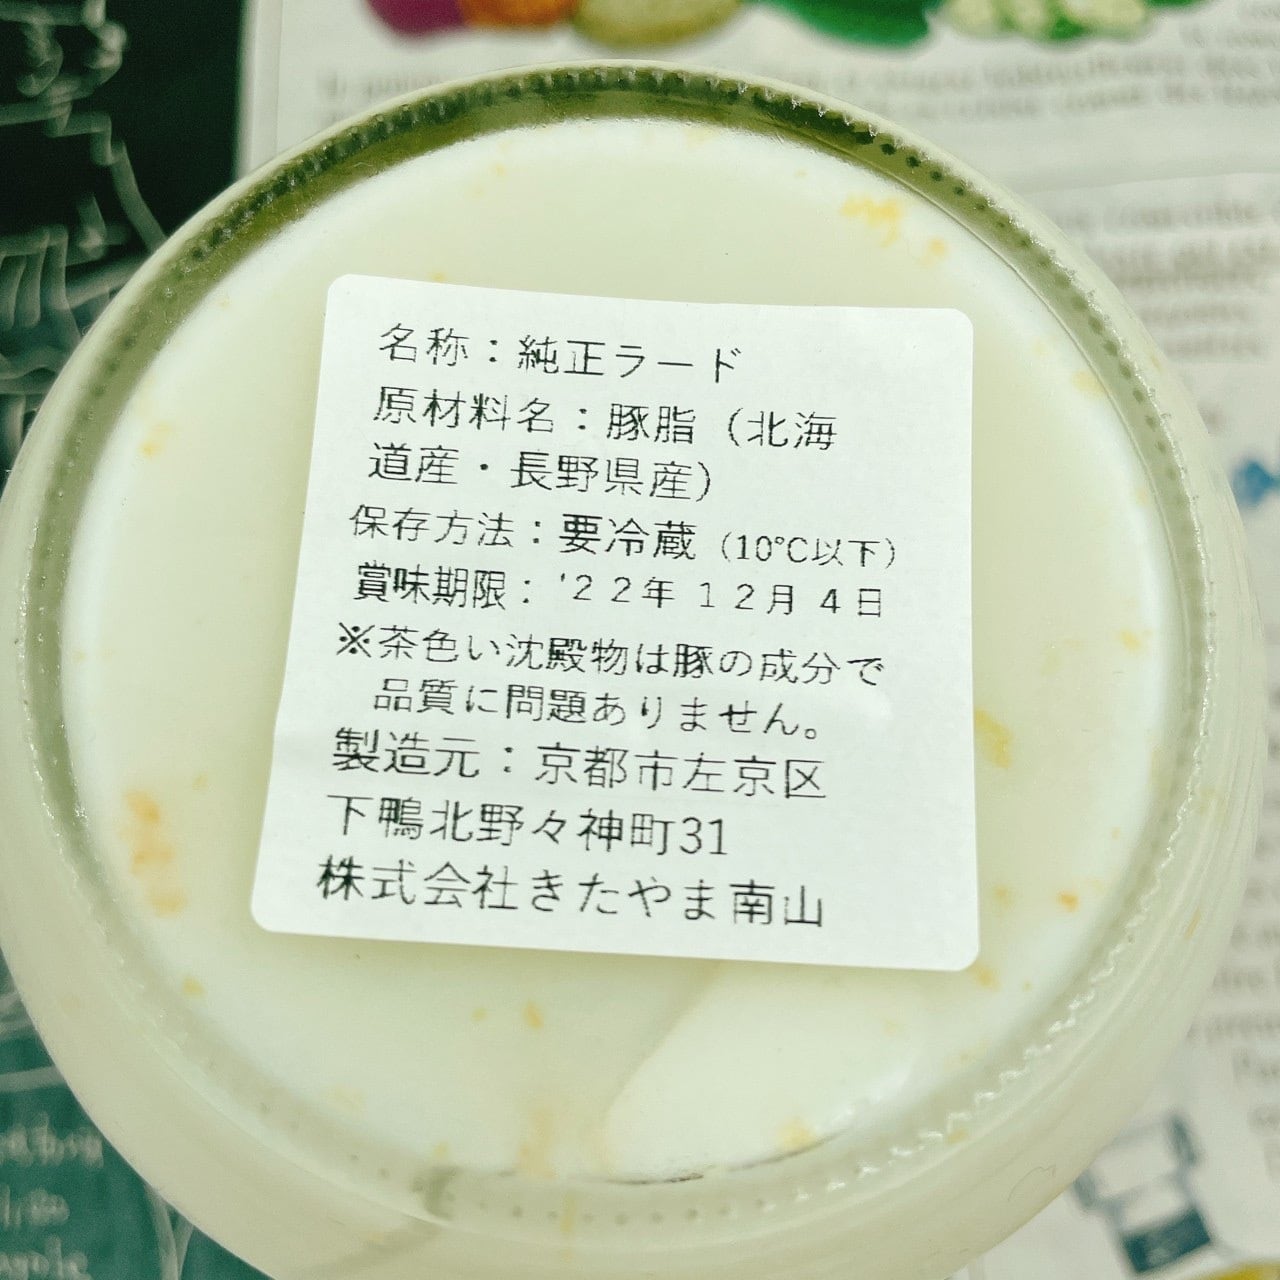 名称：純正ラード
原材料名：豚脂（北海
道産・長野県産）
保存方法：要冷蔵（10℃以下）
賞味期限：'２２年 １２月 ４日
※茶色い沈殿物は豚の成分で
品質に問題ありません。
製造元：京都市左京区
下鴨北野々神町31
株式会社きたやま南山